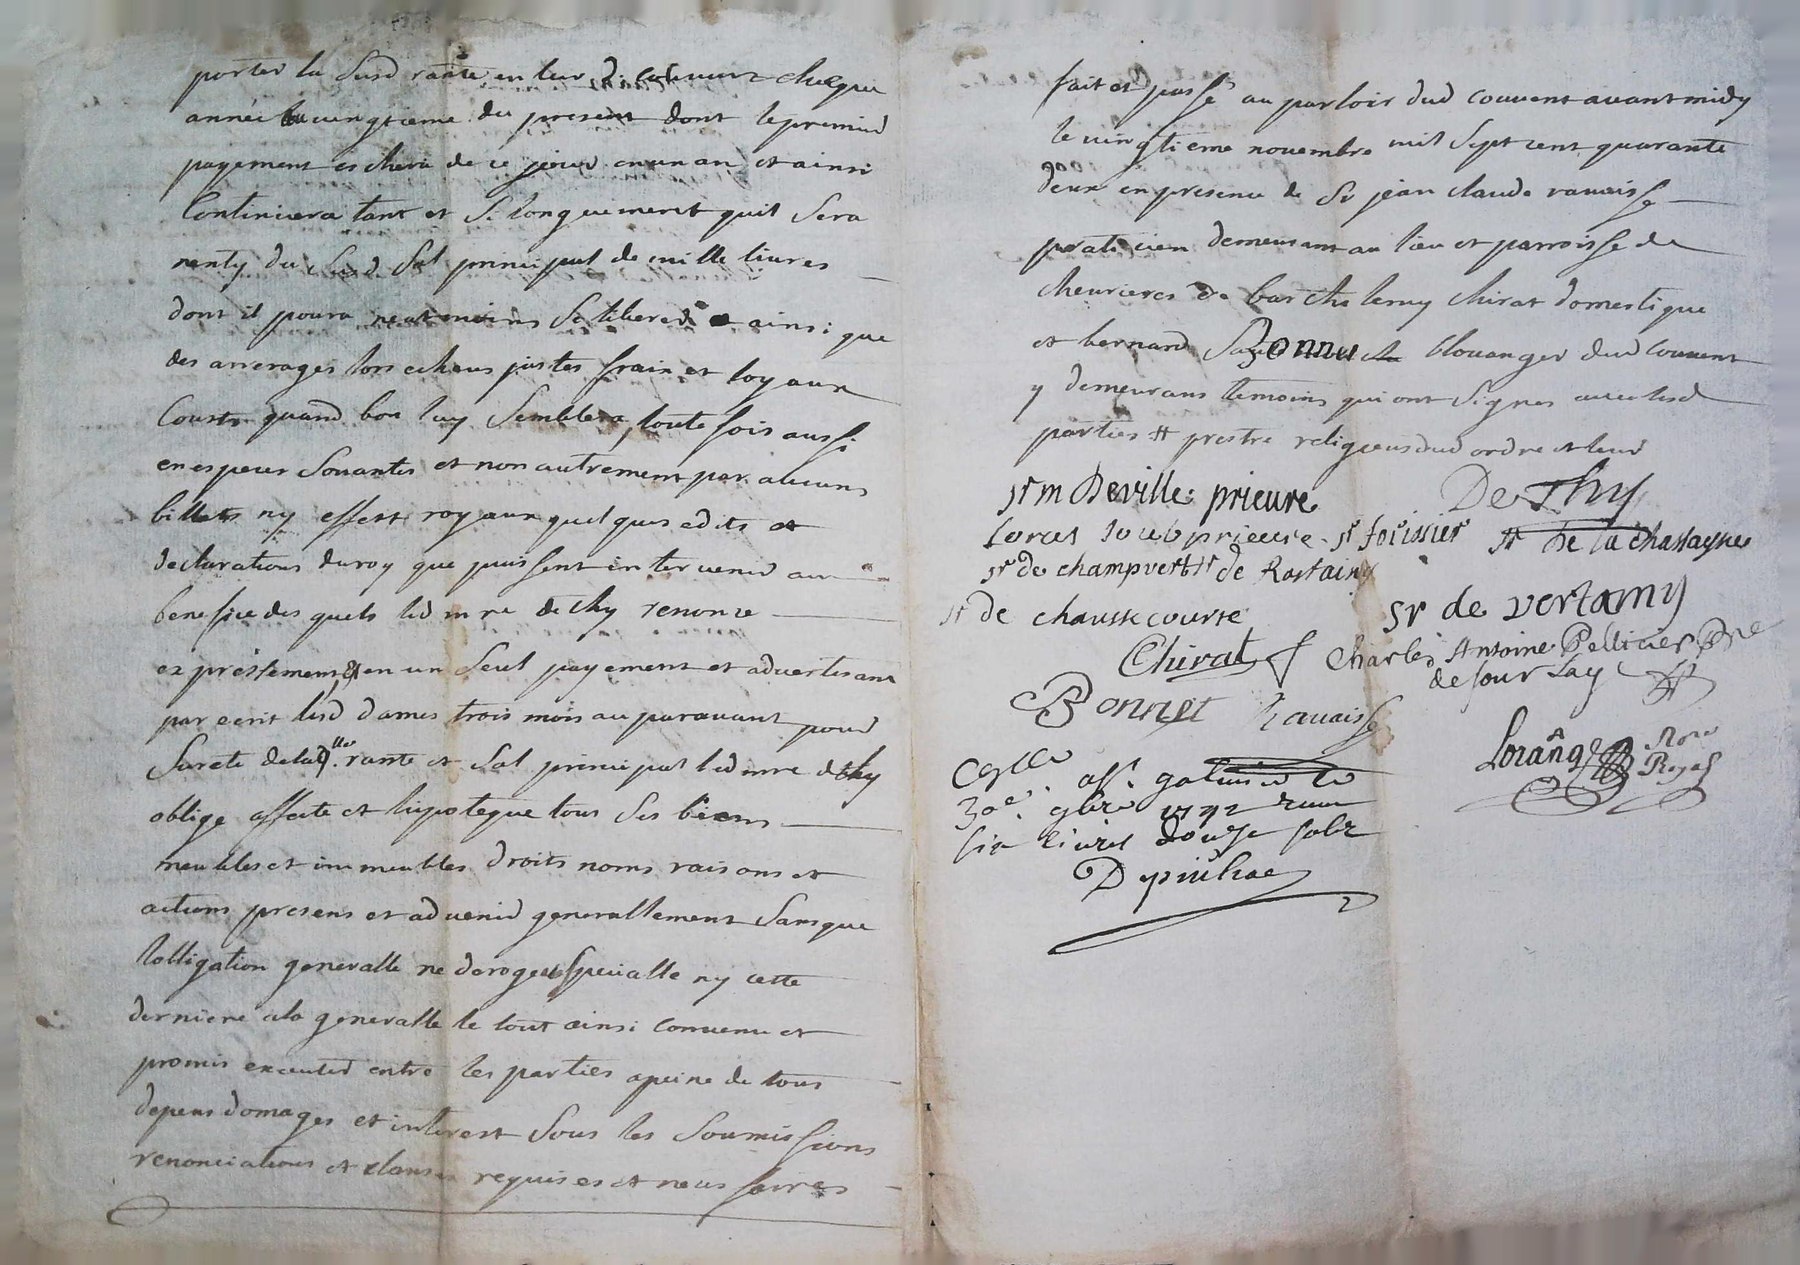 porter la susd rante en leur d. couvent chaque
année le vingtieme du present dont le premier
payement eschera de ce jour en un an et ainsi
Continuera tant et si longuement quil sera
nanty du susd sol principal de mille livres
dont il poura neantmoins se liberer et ainsi que
des arrerages lors echeus justes frais et loyaux
Cousts quand bon luy semblera, toute fois aussi
en especes sonantes et non autrement par aucuns
billets ny effets royaux quelques edits et
declarations du roy que puissent intervenir au
benefice des quels led mre de thy renonce
expressement, et en un seul payement et advertisant
par ecrit lesd dames trois mois au paravant pour
sureté de lad. rante et sol principal led mre dethy
oblige affecte et hipoteque tous ses biens
meubles et immeubles droits noms raisons et
actions presens et advenir generallement sans que
lobligation generalle ne deroge a la specialle ny cette
derniere a la generalle le tout ainsi convenu et
promis executer entre les parties a peine de tous
depens domages et interest sous les soumissions
renonciations et clauses requises et necessaires
fait et passé au parloir dud couvent avant midy
le vingtieme novembre mil sept cent quarante
deux en presence de Sr jean claude ravaisse
praticien demeurant au lieu et parroisse de
chevrieres de barthelemy chirat domestique
et bernard Bonnet boulanger dud couvent
y demeurans temoins qui ont signés avec lesd
parties # prestre religieux dud ordre et leur
sr m Deville prieure De Thy
Loras soubprieure sr forissier sr De la chassaigne
sr de champvert sr de Rostaing
sr de chaussecourte sr de vertamy
Chirat Charles Antoine Pellicier Pre
de jourlay
Bonnet Ravaisse
Lorânge Nore Royal
Coll.
a St. galmier le
30e. 9bre 1742 reçu
six livres douze sols
Depinhac